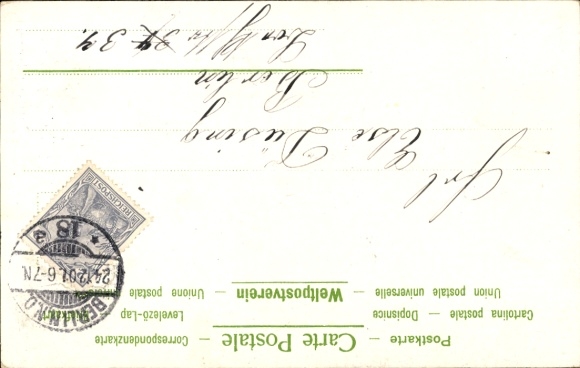 Carte Postale
Postkarte — Correspondenzkarte
Cartolina postale — Dopisnice — Levelező-Lap
Union postale universelle — Weltpostverein — Unione postale
REICHSPOST
BERLIN N.O.
24.12.01. 6-7N.
* 18 a
Frl Else Düsing
Berlin
37.